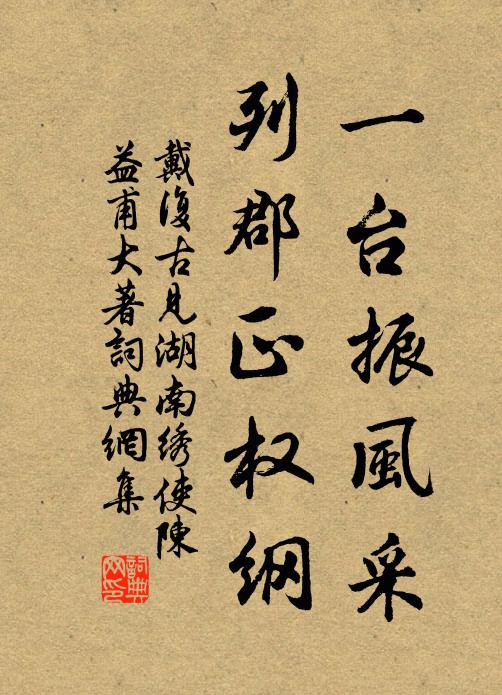 一台振風采
列郡正权纲
戴復古見湖南绣使陳
益甫大著詞典網集
詞典
网印